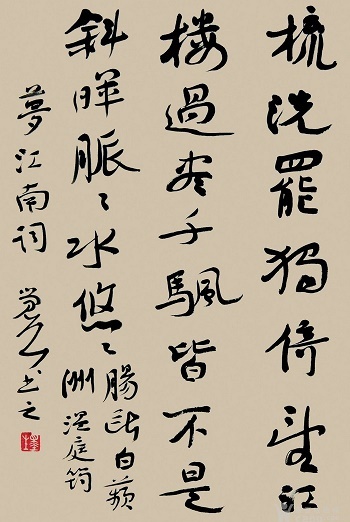 梳洗罷獨倚望江
樓過盡千颿皆不是
斜暉脈〻水悠〻
腸斷白蘋
洲溫庭筠
夢江南詞
書之